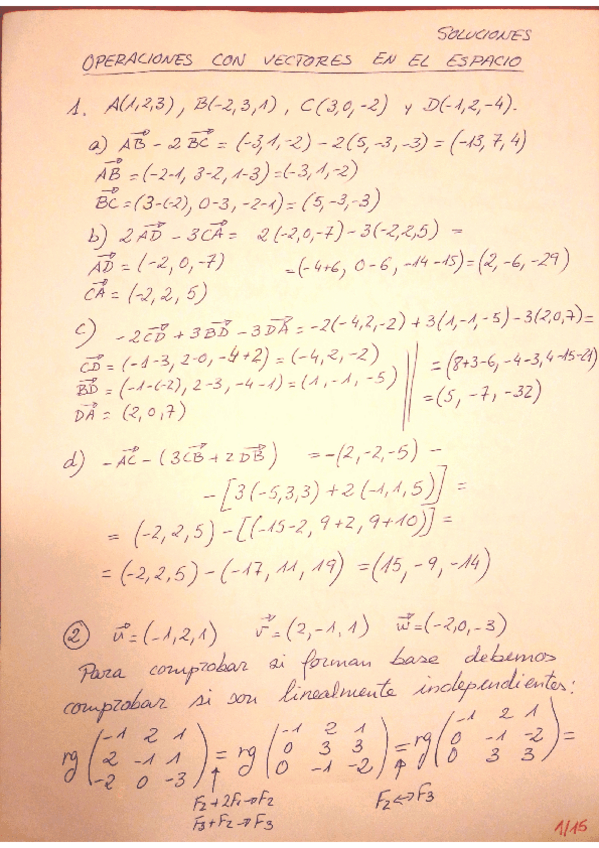 SOLUCIONES
OPERACIONES CON VECTORES EN EL ESPACIO
1. A(1,2,3), B(-2,3,1), C(3,0,-2) y D(-1,2,-4).
a) AB⃗ - 2BC⃗ = (-3,1,-2) - 2(5,-3,-3) = (-13,7,4)
AB⃗ = (-2-1, 3-2, 1-3) = (-3,1,-2)
BC⃗ = (3-(-2), 0-3, -2-1) = (5,-3,-3)
b) 2AD⃗ - 3CA⃗ = 2(-2,0,-7) - 3(-2,2,5) =
AD⃗ = (-2,0,-7) = (-4+6, 0-6, -14-15) = (2,-6,-29)
CA⃗ = (-2,2,5)
c) -2CD⃗ + 3BD⃗ - 3DA⃗ = -2(-4,2,-2) + 3(1,-1,-5) - 3(2,0,7) =
CD⃗ = (-1-3, 2-0, -4+2) = (-4,2,-2) = (8+3-6, -4-3, 4-15-21)
BD⃗ = (-1-(-2), 2-3, -4-1) = (1,-1,-5) = (5,-7,-32)
DA⃗ = (2,0,7)
d) -AC⃗ - (3CB⃗ + 2DB⃗) = -(2,-2,-5) -
- [3(-5,3,3) + 2(-1,1,5)] =
= (-2,2,5) - [(-15-2, 9+2, 9+10)] =
= (-2,2,5) - (-17,11,19) = (15,-9,-14)
② u⃗ = (-1,2,1) v⃗ = (2,-1,1) w⃗ = (-2,0,-3)
Para comprobar si forman base debemos
comprobar si son linealmente independientes:
-1 2 1 -1 2 1 -1 2 1
rg ( 2 -1 1 ) = rg ( 0 3 3 ) = rg ( 0 -1 -2 ) =
-2 0 -3 0 -1 -2 0 3 3
F2+2F1→F2 F2↔F3
F3+F2→F3
1/15